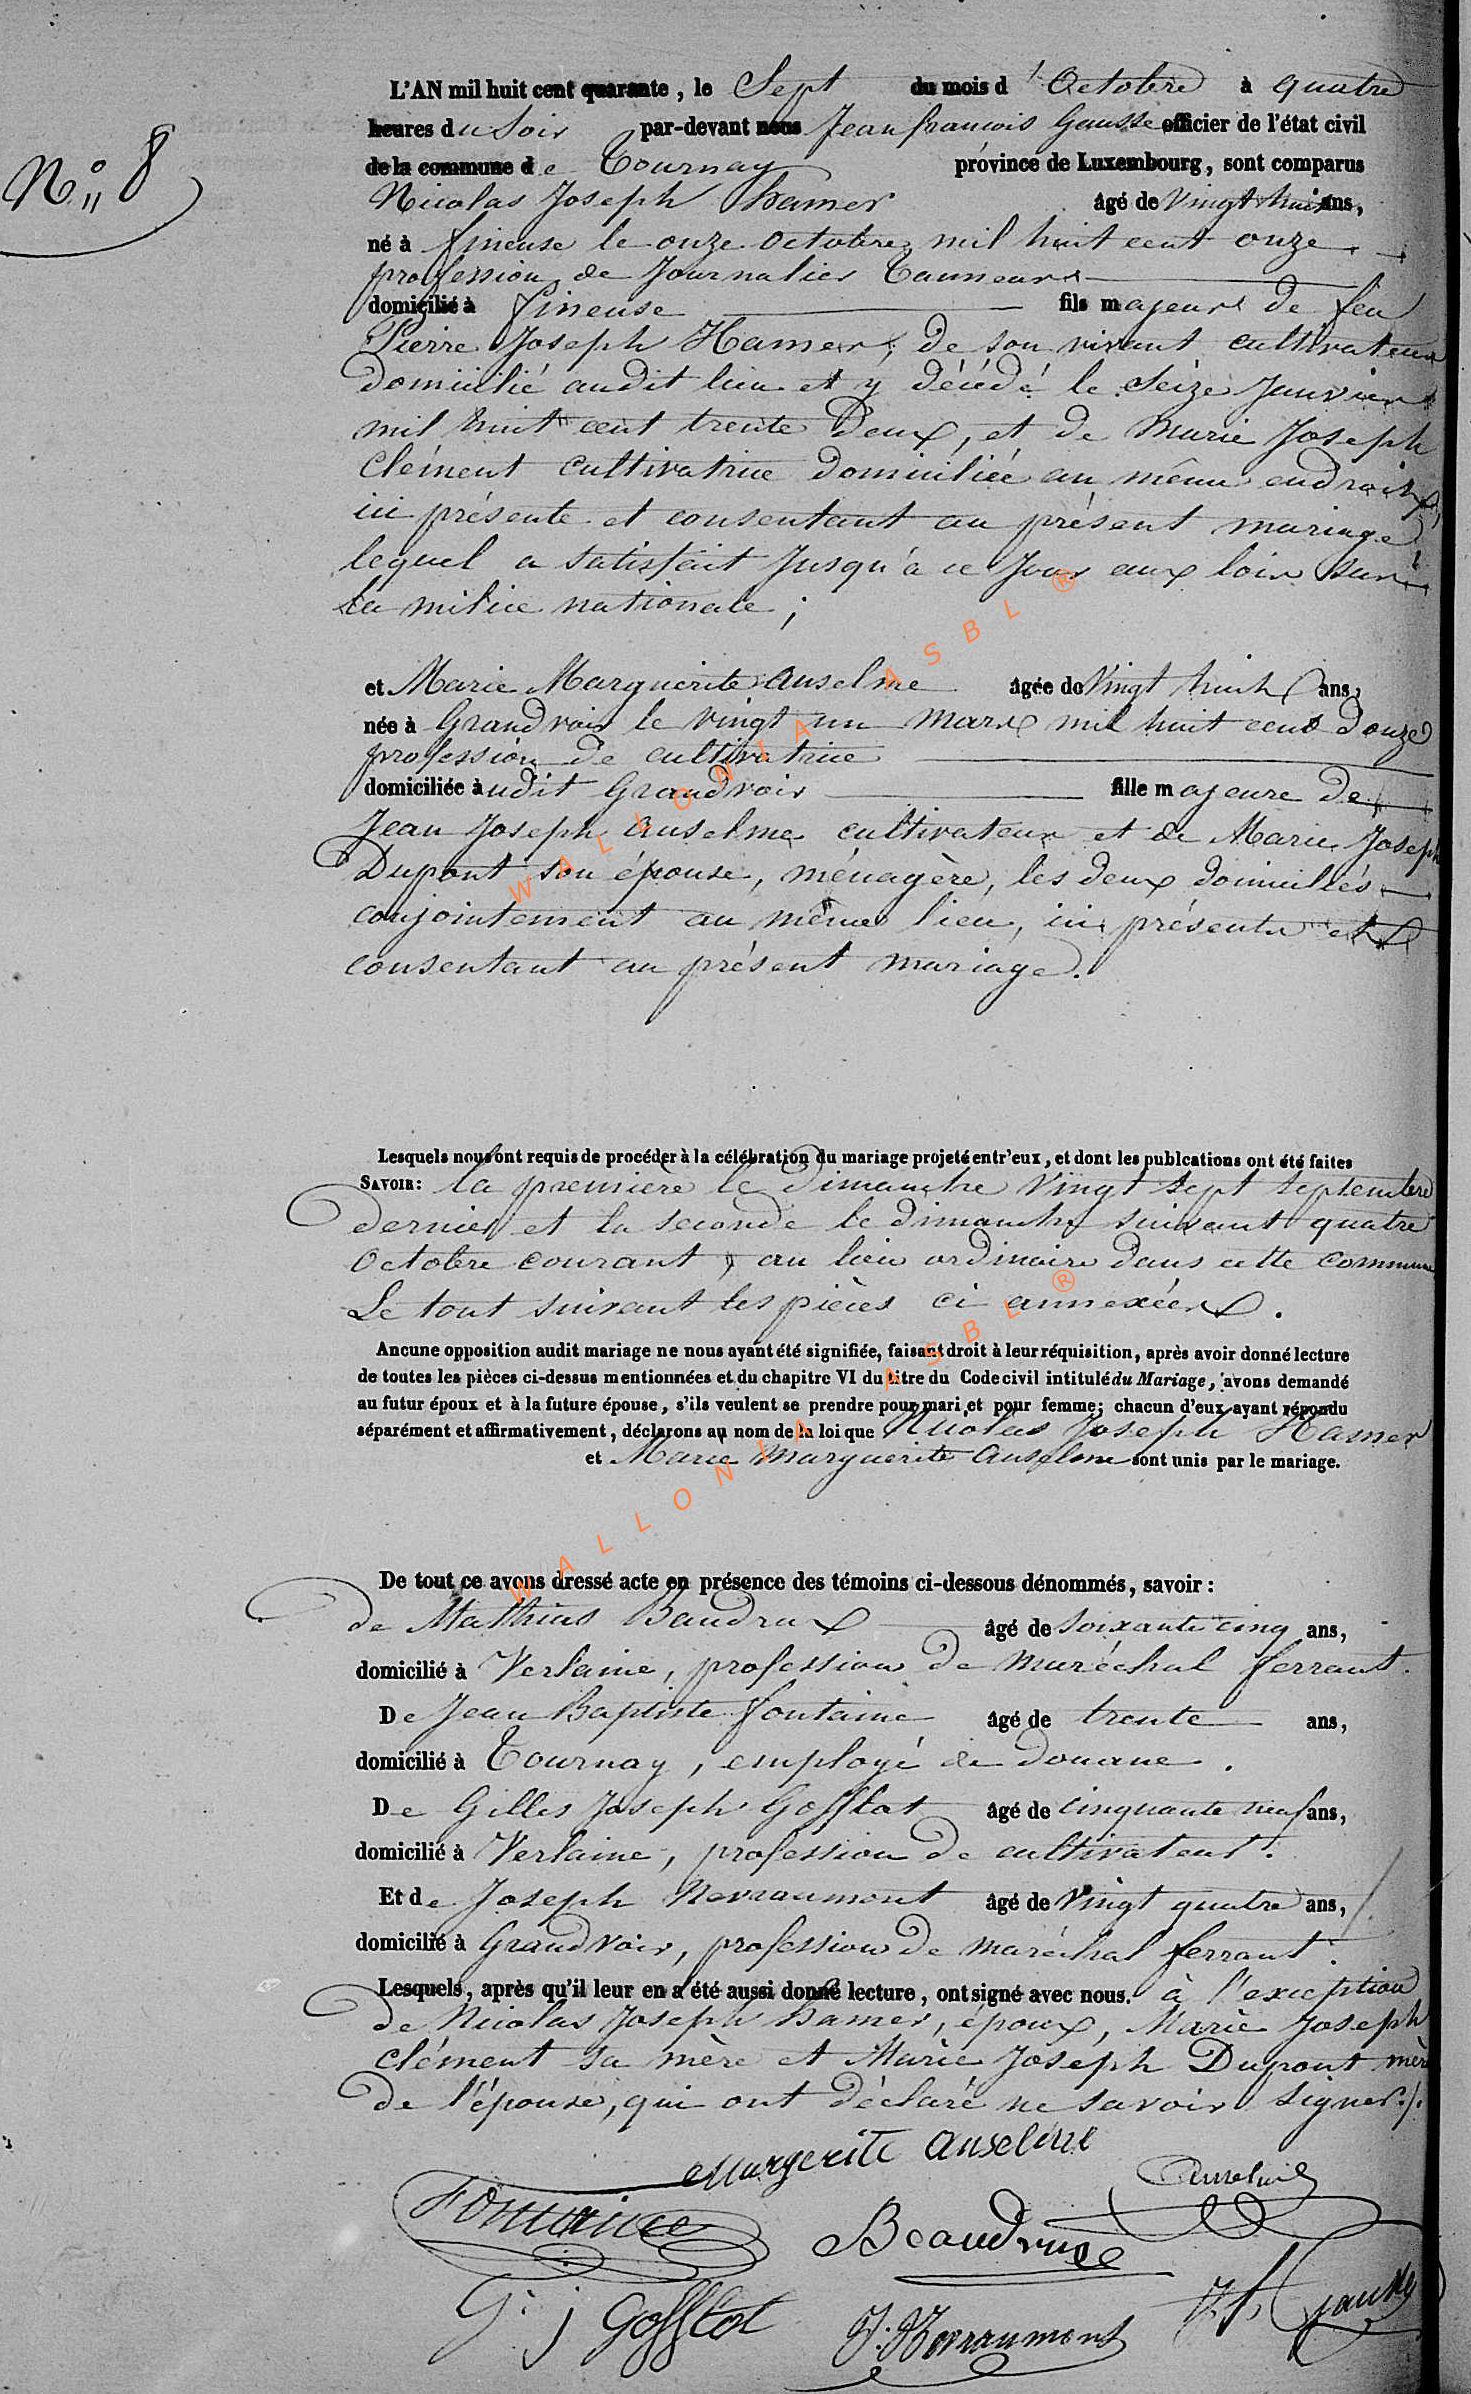 N° 8
L'AN mil huit cent quarante, le Sept du mois d'Octobre à quatre
heures du Soir par-devant nous Jean françois Gausse officier de l'état civil
de la commune de Tournay province de Luxembourg, sont comparus
Nicolas Joseph Hamer âgé de vingt huit ans,
né à fineuse le onze octobre mil huit cent onze
profession de Journalier Tanneur
domicilié à fineuse fils majeur de feu
Pierre Joseph Hamer, de son vivant cultivateur
domicilié audit lieu et y décédé le Seize Janvier
mil huit cent trente Deux, et de Marie Joseph
Clément cultivatrice domiciliée au même endroit,
ici présente et consentant au présent mariage
lequel a satisfait Jusqu'à ce Jour aux loix sur
la milice nationale ;
et Marie Marguerite Anselme âgée de Vingt huit ans,
née à Grandvoir le vingt un Mars mil huit cent douze
profession de cultivatrice
domiciliée audit Grandvoir fille majeure de
Jean Joseph Anselme cultivateur et de Marie Joseph
Dupont son épouse, ménagère, les deux domiciliés
conjointement au même lieu, ici présents et
consentant au présent mariage.
Lesquels nous ont requis de procéder à la célébration du mariage projeté entr'eux, et dont les publcations ont été faites
SAVOIR : la première le dimanche vingt sept septembre
dernier et la seconde le dimanche suivant quatre
Octobre courant, au lieu ordinaire dans cette commune
Le tout suivant les pièces ci annexées.
Ancune opposition audit mariage ne nous ayant été signifiée, faisant droit à leur réquisition, après avoir donné lecture
de toutes les pièces ci-dessus mentionnées et du chapitre VI du titre du Code civil intitulé du Mariage, avons demandé
au futur époux et à la future épouse, s'ils veulent se prendre pour mari et pour femme; chacun d'eux ayant répondu
séparément et affirmativement, déclarons au nom de la loi que Nicolas Joseph Hamer
et Marie Marguerite Anselme sont unis par le mariage.
De tout ce avons dressé acte en présence des témoins ci-dessous dénommés, savoir :
de Mathias Baudrux âgé de soixante cinq ans,
domicilié à Verlaine, profession de maréchal ferrant.
De Jean Baptiste fontaine âgé de trente ans,
domicilié à Tournay, employé de douane.
De Gilles Joseph Gofflot âgé de cinquante neuf ans,
domicilié à Verlaine, profession de cultivateur.
Et de Joseph Nevraumont âgé de vingt quatre ans,
domicilié à Grandvoir, profession de maréchal ferrant.
Lesquels, après qu'il leur en a été aussi donné lecture, ont signé avec nous. à l'exception
de Nicolas Joseph Hamer, époux, Marie Joseph
clément sa mère et Marie Joseph Dupont mère
de l'épouse, qui ont déclaré ne savoir signer./.
Margerite Anselme
Anselme
Fontaine
Beaudrux
G. j Gofflot
J. Nevraumont
J. f. Gausse
WALLONIA ASBL ®
WALLONIA ASBL ®